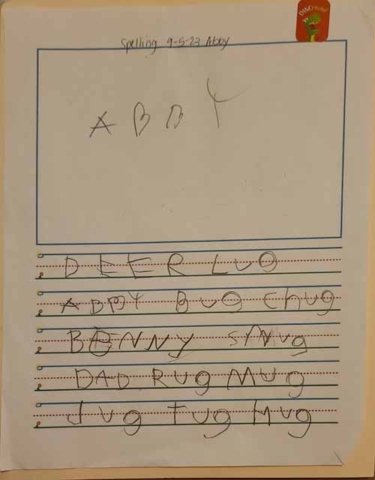 Spelling 9-5-23 Abby
ABBY
DEER Lug
ABBY Bug Chug
BENNY snug
DAD Rug Mug
Jug Tug Hug